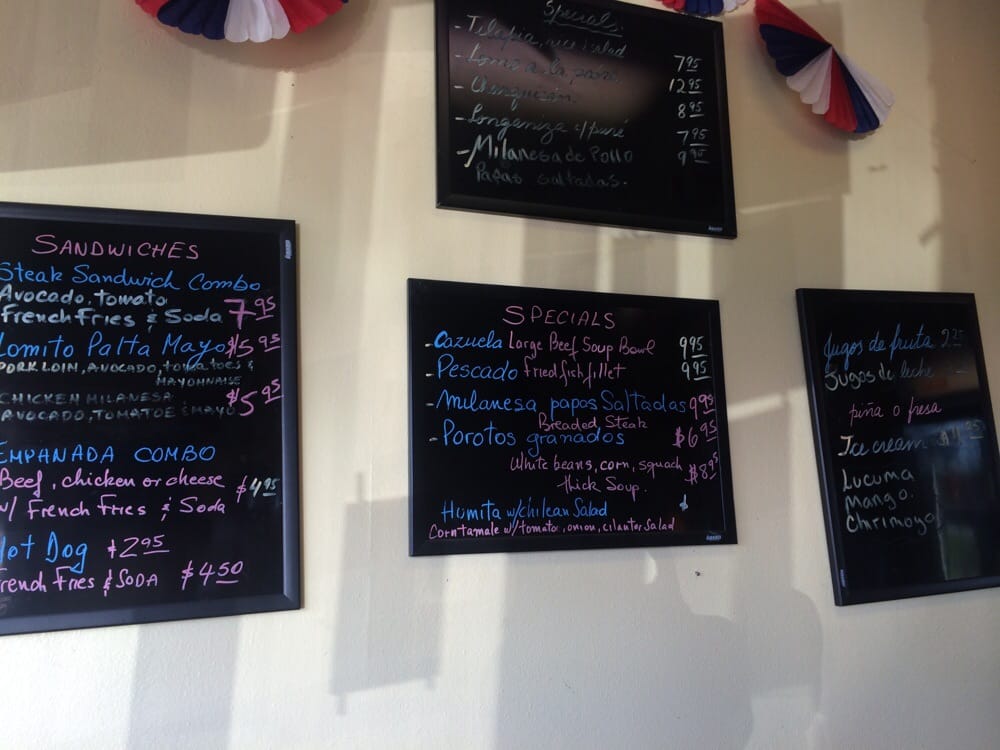 Specials.
- Tilapia, rice, salad 7 95
- Lomo a lo pobre 12 95
- Charquicán 8 95
- Longaniza c/puré 7 95
- Milanesa de Pollo 9 95
Papas saltadas.
SANDWICHES
Steak Sandwich Combo
Avocado, tomato
French Fries & Soda 7 95
Lomito Palta Mayo $5 95
PORK LOIN, AVOCADO, tomatoes &
MAYONNAISE
CHICKEN MILANESA $5 95
AVOCADO, TOMATOE & MAYO
EMPANADA COMBO
Beef, chicken or cheese $4 95
w/ French Fries & Soda
Hot Dog $2 95
French Fries & SODA $4 50
SPECIALS
- Cazuela Large Beef Soup Bowl 9 95
- Pescado Fried fish fillet 9 95
- Milanesa papas Saltadas 9 95
Breaded Steak
- Porotos granados $6 95
White beans, corn, squach $8 95
thick Soup.
Humita w/chilean Salad $
Corn tamale w/tomato, onion, cilanter Salad
Jugos de fruta 2 25
Jugos de leche
piña o fresa
Ice cream
Lucuma
Mango.
Chirimoya